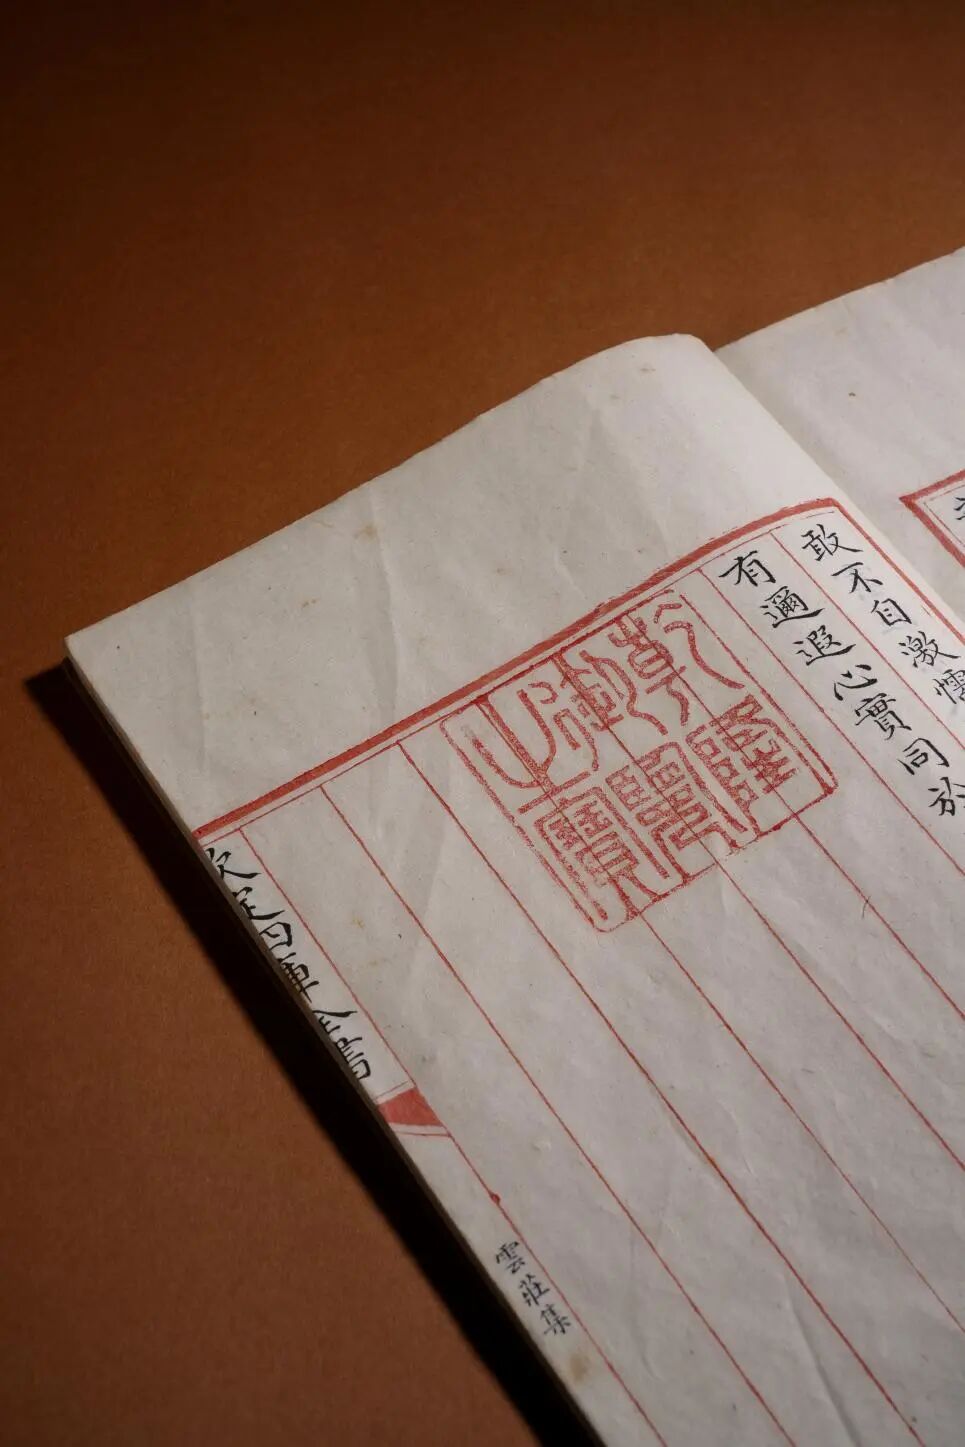 敢不自激
有邇遐心實同於
乾隆
御覽
之寶
欽定四庫全書
雲莊集